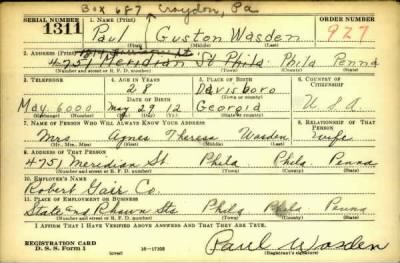 Box 687 Croydon, Pa
SERIAL NUMBER 1. NAME (Print) ORDER NUMBER
1311 Paul Guston Wasden 927
(First) (Middle) (Last)
2. ADDRESS (Print)
4751 Meridian St Phila. Phila Penna
(Number and street or R. F. D. number) (Town) (County) (State)
3. TELEPHONE 4. AGE IN YEARS 5. PLACE OF BIRTH 6. COUNTRY OF CITIZENSHIP
28 Davisboro
DATE OF BIRTH (Town or county)
May. 6000 May 29 12 Georgia U S A
(Exchange) (Number) (Mo.) (Day) (Yr.) (State or country)
7. NAME OF PERSON WHO WILL ALWAYS KNOW YOUR ADDRESS 8. RELATIONSHIP OF THAT PERSON
Mrs Agnes Theresa Wasden wife
(Mr., Mrs., Miss) (First) (Middle) (Last)
9. ADDRESS OF THAT PERSON
4751 Meridian St. Phila Phila. Penna
(Number and street or R. F. D. number) (Town) (County) (State)
10. EMPLOYER'S NAME
Robert Gair Co.
11. PLACE OF EMPLOYMENT OR BUSINESS
State and Rhawn Sts Phila Phila Penna
(Number and street or R. F. D. number) (Town) (County) (State)
I AFFIRM THAT I HAVE VERIFIED ABOVE ANSWERS AND THAT THEY ARE TRUE.
REGISTRATION CARD
D. S. S. Form 1 (over) 16—17105 Paul Wasden
(Registrant's signature)